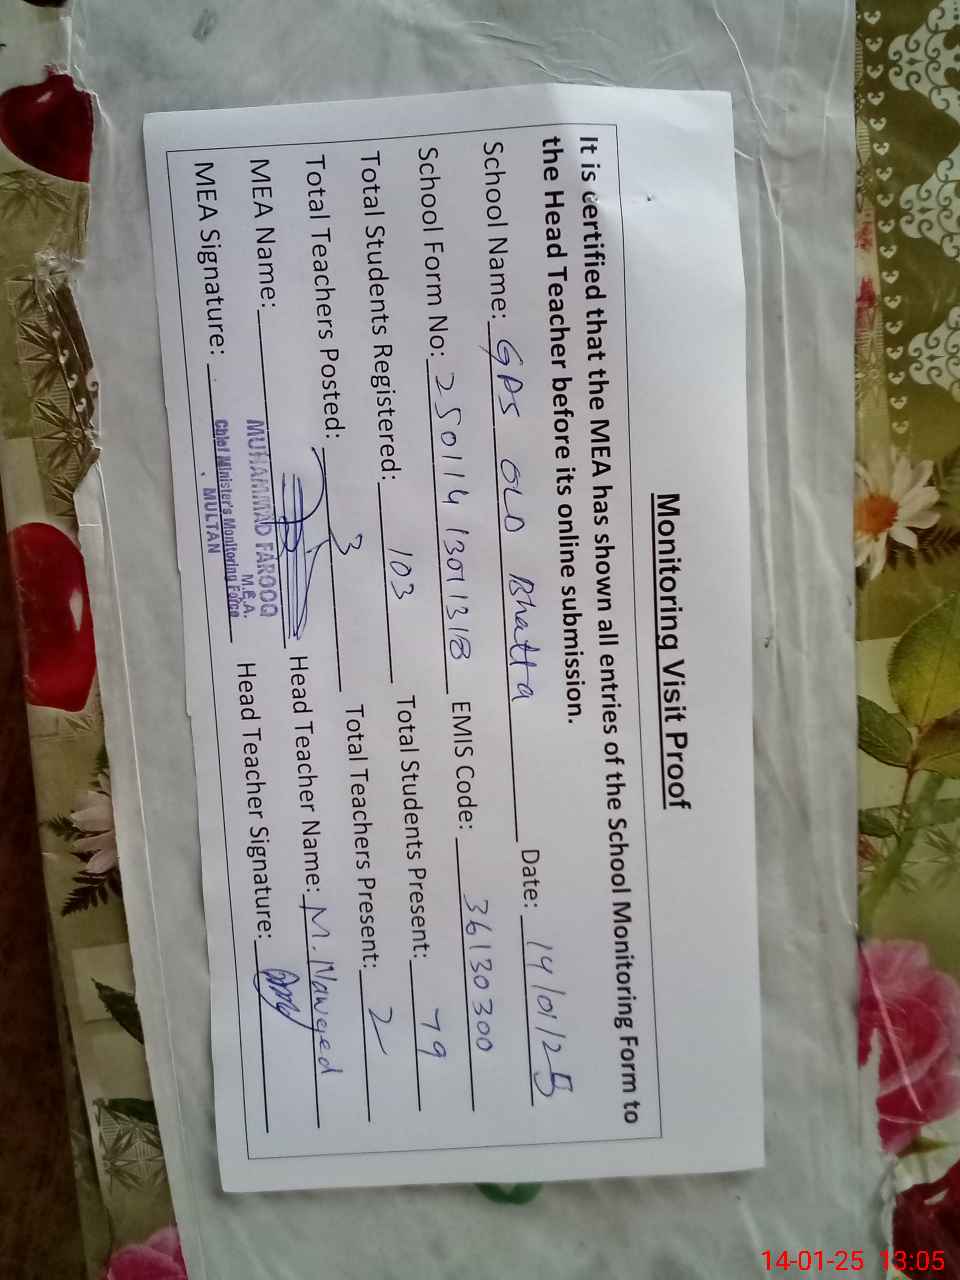 Monitoring Visit Proof
It is certified that the MEA has shown all entries of the School Monitoring Form to
the Head Teacher before its online submission.
School Name: GPS OLD Bhatta Date: 14/01/25
School Form No: 250114 1301318 EMIS Code: 36130300
Total Students Registered: 103 Total Students Present: 79
Total Teachers Posted: 3 Total Teachers Present: 2
MEA Name: MUHAMMAD FAROOQ Head Teacher Name: M. Naveed
M.E.A.
MEA Signature: Chief Minister's Monitoring Force Head Teacher Signature:
MULTAN
14-01-25 13:05